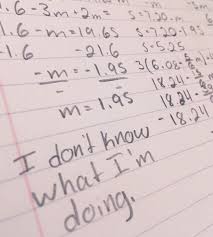 1.6-3m+2m= 5.720-m
1.6-m=19.65 5.720-195
-1.6 -21.6 5.525
-m=-1.95 3(6.08-
m=1.95 18.24-
18.24-
-18.24
I don't know
what I'm
doing.